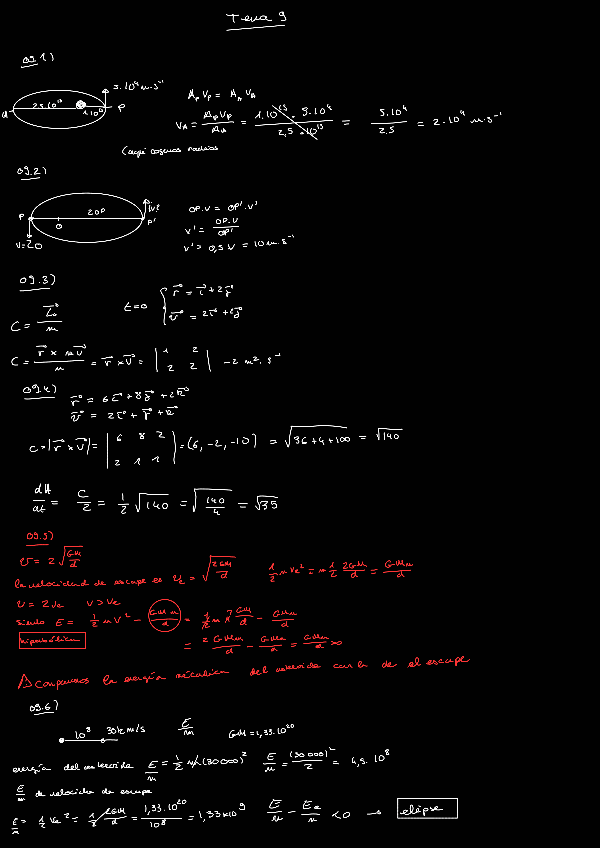 Tema 9
09.1)
3·10⁴ m·s⁻¹
A 2.5·10¹³ 1·10¹³ P
A_P V_P = A_A V_A
V_A = A_P V_P / A_A = 1·10¹³ · 5·10⁴ / 2,5·10¹³ = 5·10⁴ / 2,5 = 2·10⁴ m·s⁻¹
(aquí cogemos radios
09.2)
P 20P P'
O
V=20
OP·V = OP'·V'
V' = OP·V / OP'
V' = 0,5 V = 10 m·s⁻¹
09.3)
C = L₀ / m
t=0 { r = i + 2j
v = 2i + 2j
C = r × mv / m = r × v = | 1 2 | -2 m²·s⁻¹
2 2
09.4)
r = 6i + 8j + 2k
v = 2i + j + k
C = |r × v| = | 6 8 2 | = (6, -2, -10) = √36+4+100 = √140
2 1 1
dA/dt = C/2 = 1/2 √140 = √140/4 = √35
09.5)
v = 2 √GM/d
la velocidad de escape es v_e = √2GM/d 1/2 m v_e² = m 1/2 2GM/d = GMm/d
v = 2v_e v > v_e
siendo E = 1/2 m v² - GMm/d = 1/2 m 4 GM/d - GMm/d
= 2GMm/d - GMm/d = GMm/d > 0
hiperbólica
Comparamos la energía mecánica del meteoroide con la de el escape
09.6)
10⁸ 30 km/s E/m GM = 1,33·10²⁰
energía del meteoroide E/m = 1/2 m (30000)² E/m = (30 000)²/2 = 4,5·10⁸
E/m de velocidad de escape
E/m = 1/2 v_e² = 1/2 2GM/d = 1,33·10²⁰ / 10⁸ = 1,33×10⁹ E/m - E_e/m < 0 → elipse